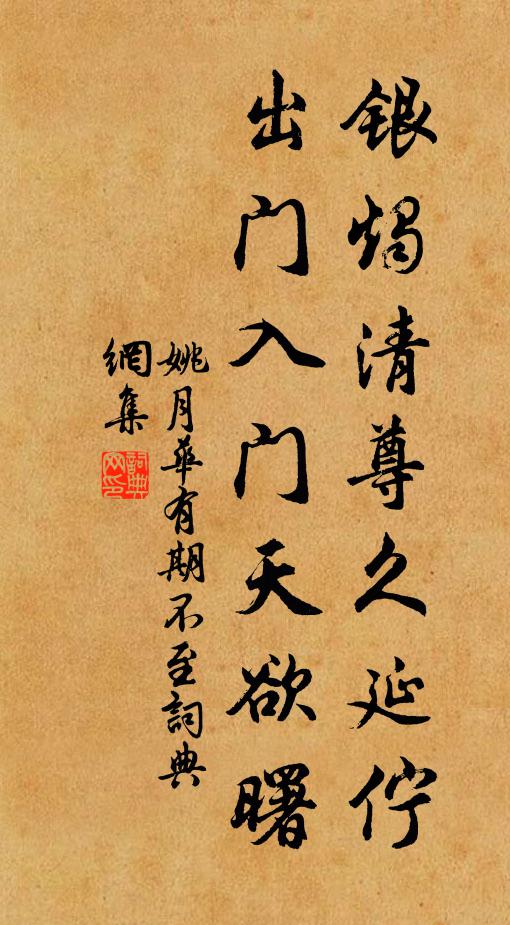 银烛清尊久延伫
出门入门天欲曙
姚月華有期不至詞典
網集
詞典網印